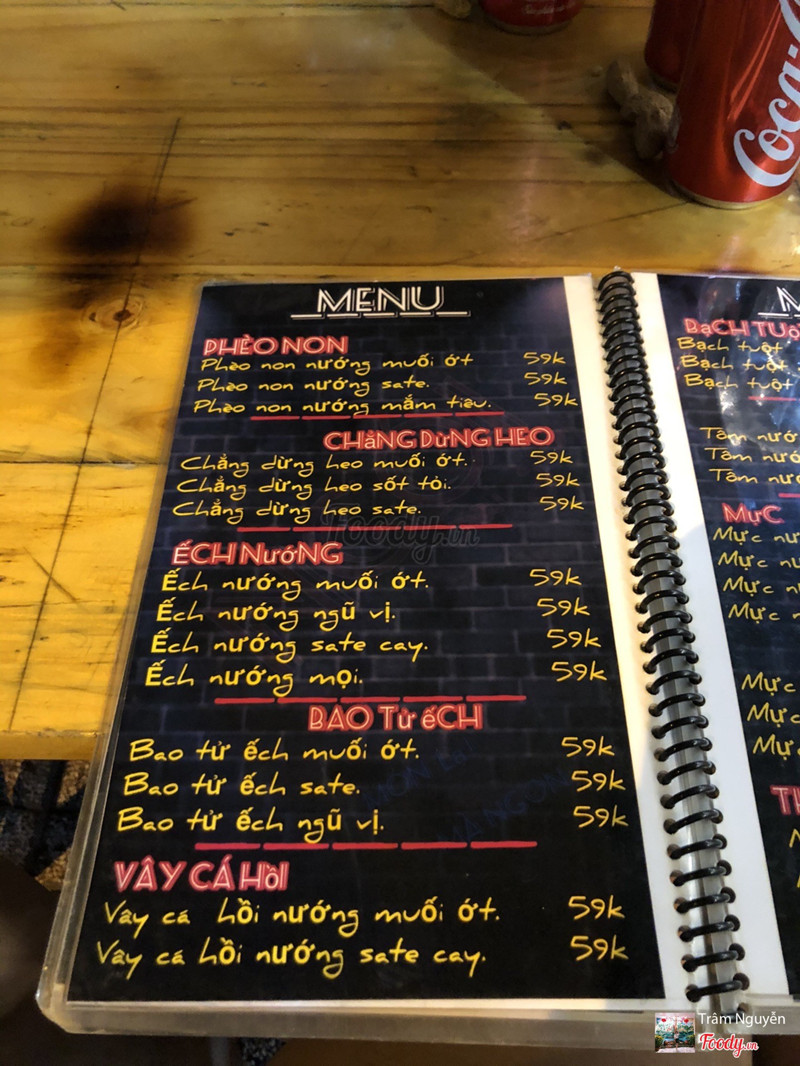 Coca-C
MENU
PHÈO NON
Phèo non nướng muối ớt 59k
Phèo non nướng sate. 59k
Phèo non nướng mắm tiêu. 59k
CHẲNG DỪNG HEO
Chẳng dừng heo muối ớt. 59k
Chẳng dừng heo sốt tỏi. 59k
Chẳng dừng heo sate. 59k
Foody.vn
ẾCH NướNG
Ếch nướng muối ớt. 59k
Ếch nướng ngũ vị. 59k
Ếch nướng sate cay. 59k
Ếch nướng mọi. 59k
BAO Tử ếCH
Bao tử ếch muối ớt. 59k
Bao tử ếch sate. 59k
Bao tử ếch ngũ vị. 59k
VÂY CÁ HồI
Vây cá hồi nướng muối ớt. 59k
Vây cá hồi nướng sate cay. 59k
M
BạCH TUộ
Bạch tuột
Bạch tuột
Bạch tuột
Tôm nướ
Tôm nướ
Tôm nướ
MựC
Mực nư
Mực n
Mực n
Mực n
Mực
Mực
Mự
Trâm Nguyễn
Foody.vn